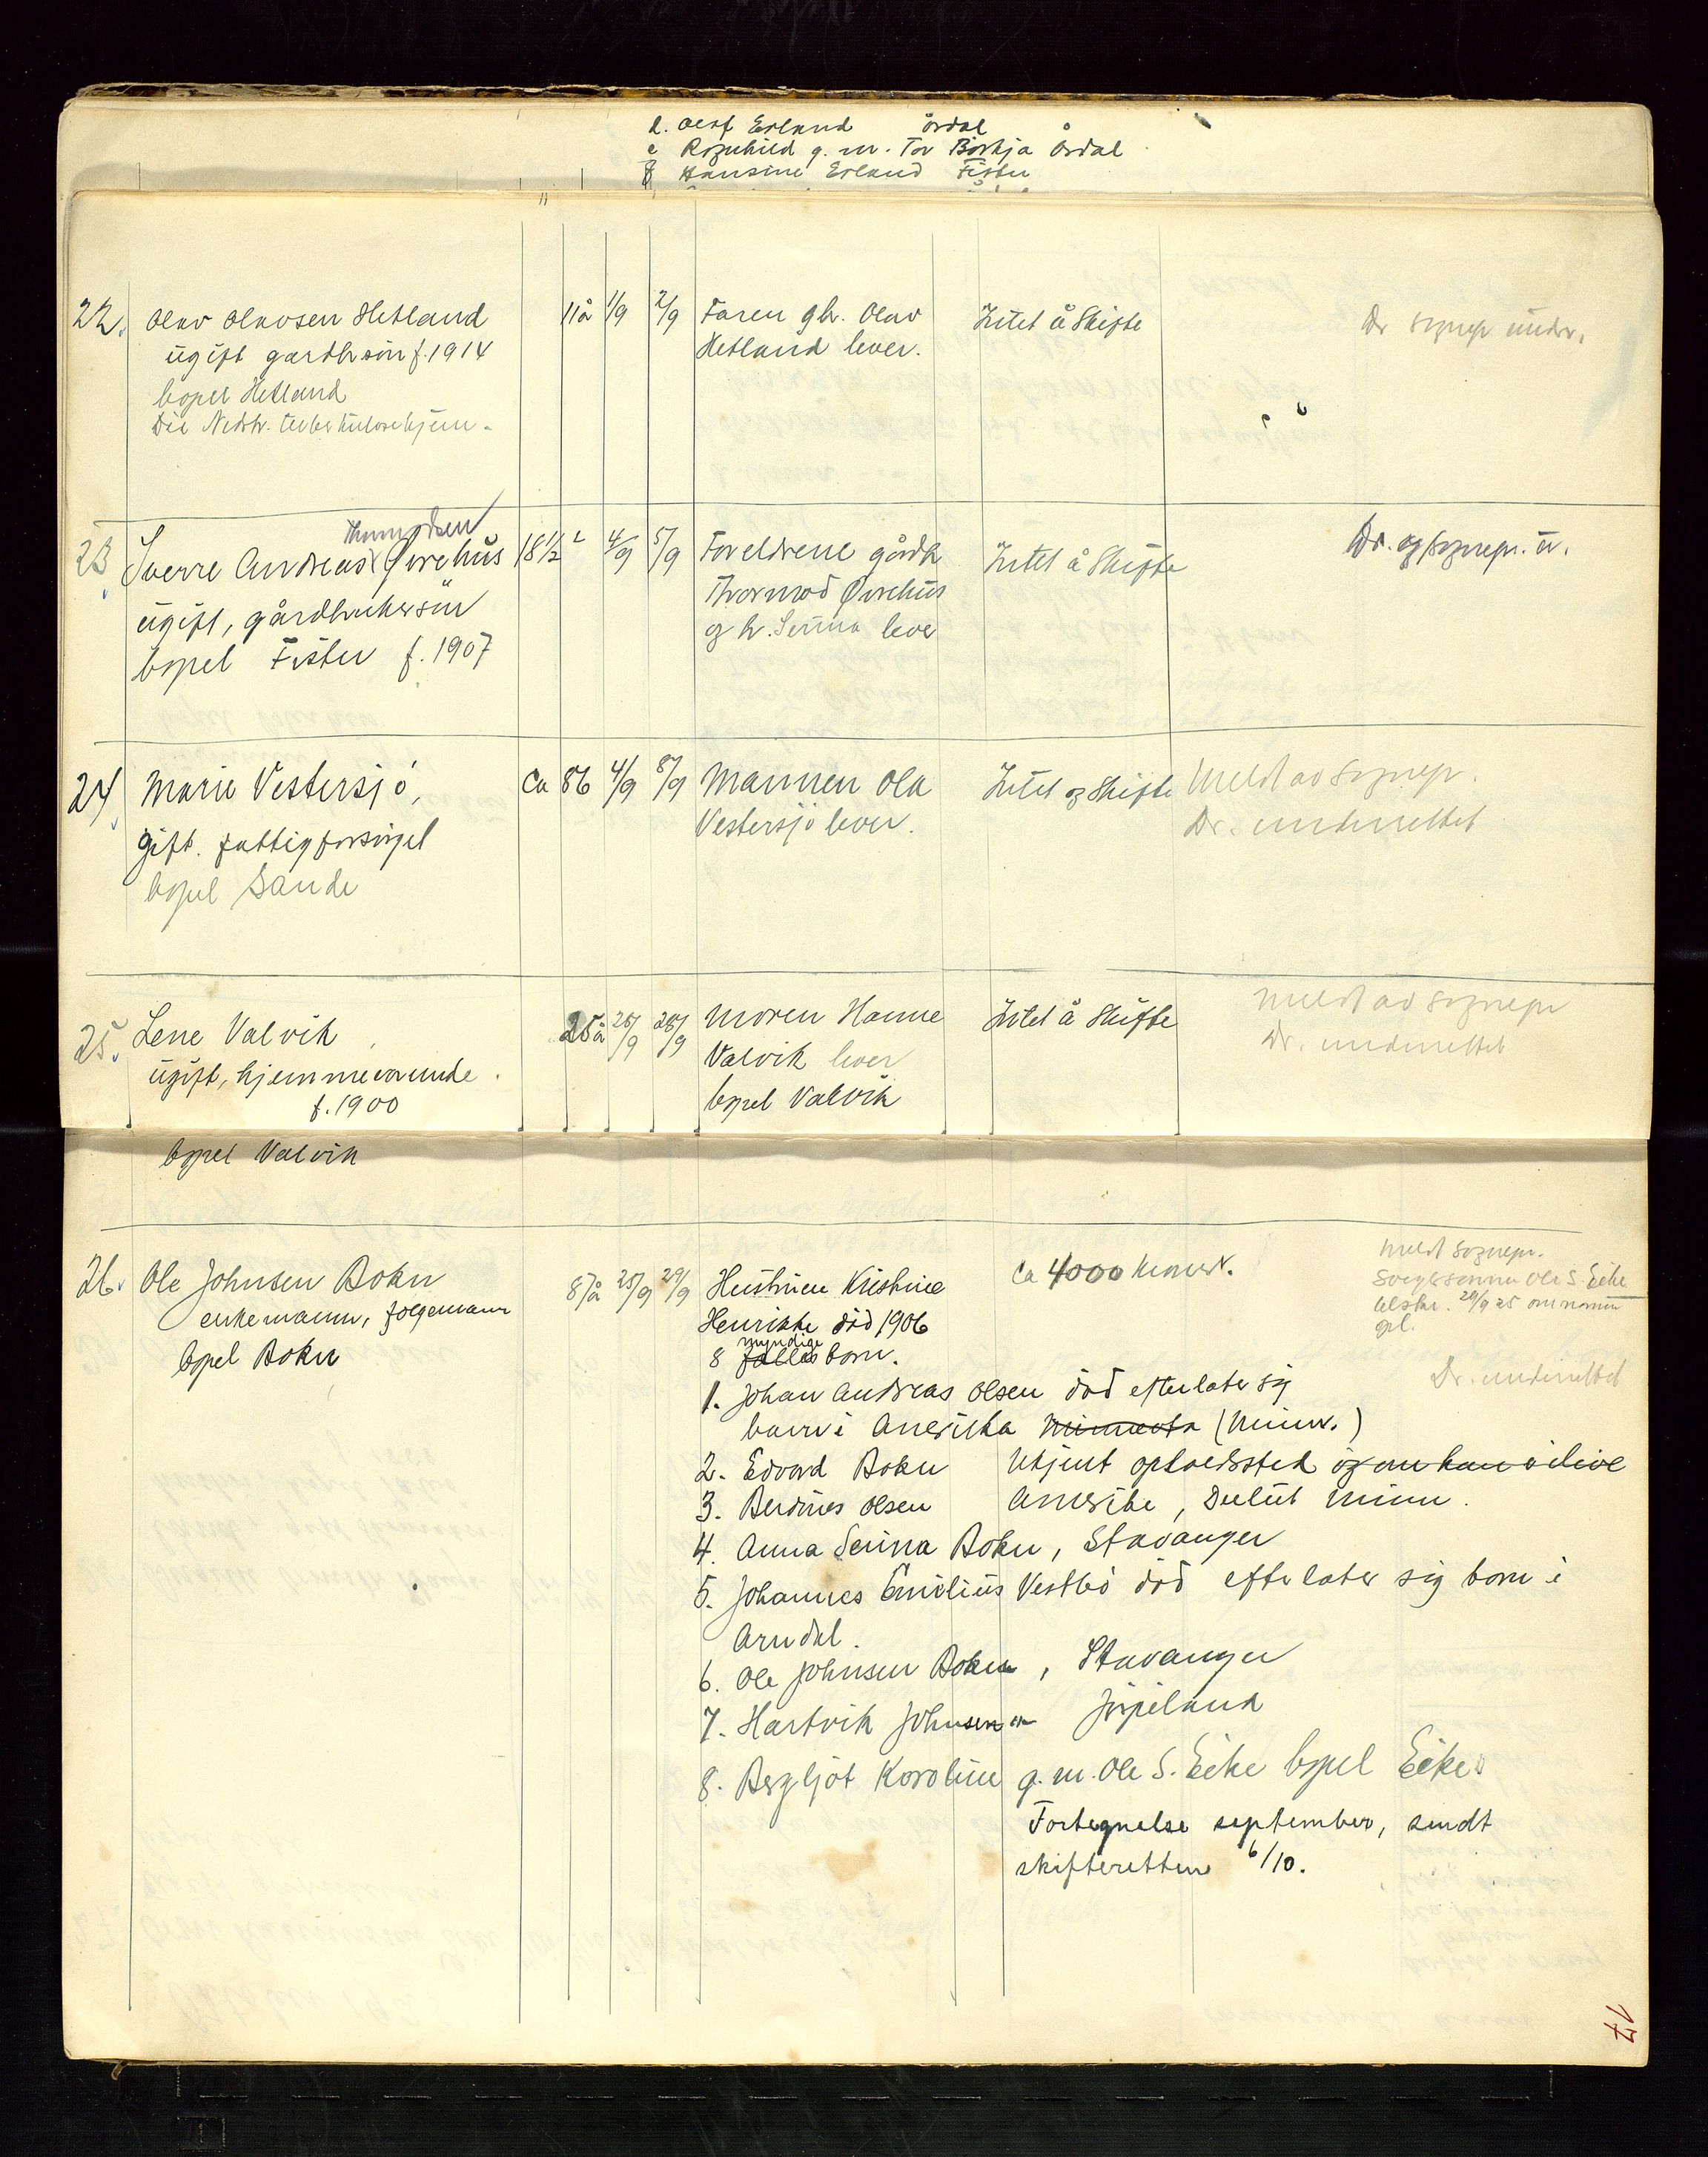 d. Olaf Erland Årdal
e Ragnhild g. m. Tor Bårkja Årdal
f Hansine Erland Fister
22. Olav Olavsen Hetland 11 år 1/9 2/9 Faren gbr. Olav Intet å Skifte Dr sognepr under.
ugift gardbrsøn f. 1914 Hetland lever.
bopel Hetland
Død Nedstr. tuberkulosehjem.
Thormodsen
23 Sverre Andreas Øvrehus 18 1/2 4/9 5/9 Foreldrene gårdb Intet å Skifte Dr. og sognepr. u.
ugift, gårdbrukersøn Thormod Øvrehus
bopel Fister f. 1907 og h. Serina lever
24 Marie Vestersjø, ca 86 4/9 8/9 Mannen Ola Intet og Skifte Meldt av sognepr.
gift. fattigforsørget Vestersjø lever. Dr. underrettet
bopel Sande
25. Lene Valvik 25 år 26/9 28/9 Moren Hanne Intet å Skifte Meldt av sognepr
ugift, hjemmeværende. Valvik lever Dr. underrettet
f. 1900 bopel Valvik
bopel Valvik
26. Ole Johnsen Bokn 87 år 25/9 29/9 Hustruen Kristine ca 4000 kroner. Meldt sognepr.
enkemann, følgemann Henrikke død 1906 Svigersønnen Ole S. Eike
bopel Bokn 8 fælles myndige born. 29/9 25
Dr. underrettet
1. Johan Andreas Olsen død efterlater sig
barn i Amerika Minnesota (Minn.)
2. Edvard Bokn Ukjent opholdssted og om han er i live
3. Berdines Olsen Amerika, Dulut Minn.
4. Anna Serina Bokn, Stavanger
5. Johannes Emilius Vestbø død efterlater sig born i
Arndal.
6. Ole Johnsen Bokn, Stavanger
7. Hartvik Johnsen Jørpeland
8. Bergljot Karoline g. m. Ole S. Eike bopel Eike.
Fortegnelse september, sendt
skifteretten 6/10.
17